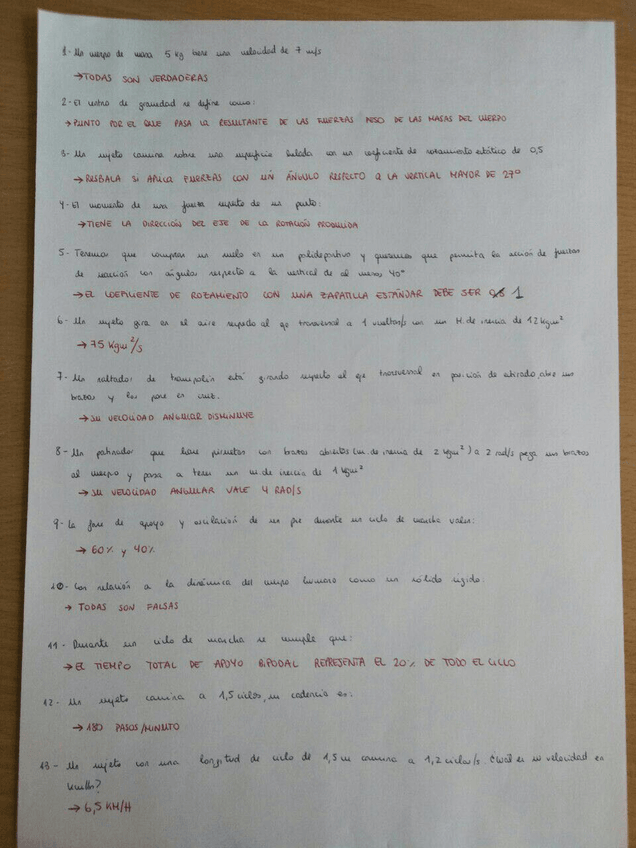 1- Un cuerpo de masa 5 kg tiene una velocidad de 7 m/s
→TODAS SON VERDADERAS
2- El centro de gravedad se define como:
→PUNTO POR EL QUE PASA LA RESULTANTE DE LAS FUERZAS PESO DE LAS MASAS DEL CUERPO
3- Un sujeto camina sobre una superficie helada con un coeficiente de rozamiento estático de 0,5
→RESBALA SI APLICA FUERZAS CON UN ÁNGULO RESPECTO A LA VERTICAL MAYOR DE 27º
4- El momento de una fuerza respecto de un punto:
→TIENE LA DIRECCIÓN DEL EJE DE LA ROTACIÓN PRODUCIDA
5- Tenemos que comprar un suelo en un polideportivo y queremos que permita la acción de fuerzas
de reacción con ángulos respecto a la vertical de al menos 40º
→EL COEFICIENTE DE ROZAMIENTO CON UNA ZAPATILLA ESTÁNDAR DEBE SER 1
6- Un sujeto gira en el aire respecto al eje transversal a 1 vueltas/s con un M. de inercia de 12 kgm²
→75 Kgm²/s
7- Un saltador de trampolín está girando respecto al eje transversal en posición de estirado, abre sus
brazos y los pone en cruz.
→SU VELOCIDAD ANGULAR DISMINUYE
8- Un patinador que hace piruetas con brazos abiertos (m. de inercia de 2 kgm²) a 2 rad/s pega sus brazos
al cuerpo y pasa a tener un m. de inercia de 1 kgm²
→SU VELOCIDAD ANGULAR VALE 4 RAD/S
9- La fase de apoyo y oscilación de un pie durante un ciclo de marcha valen:
→60% y 40%
10- Con relación a la dinámica del cuerpo humano como un sólido rígido:
→ TODAS SON FALSAS
11- Durante un ciclo de marcha se cumple que:
→EL TIEMPO TOTAL DE APOYO BIPODAL REPRESENTA EL 20% DE TODO EL CICLO
12- Un sujeto camina a 1,5 ciclos, su cadencia es:
→180 PASOS/MINUTO
13- Un sujeto con una longitud de ciclo de 1,5 m camina a 1,2 ciclos/s. ¿Cuál es su velocidad en
km/h?
→ 6,5 KM/H